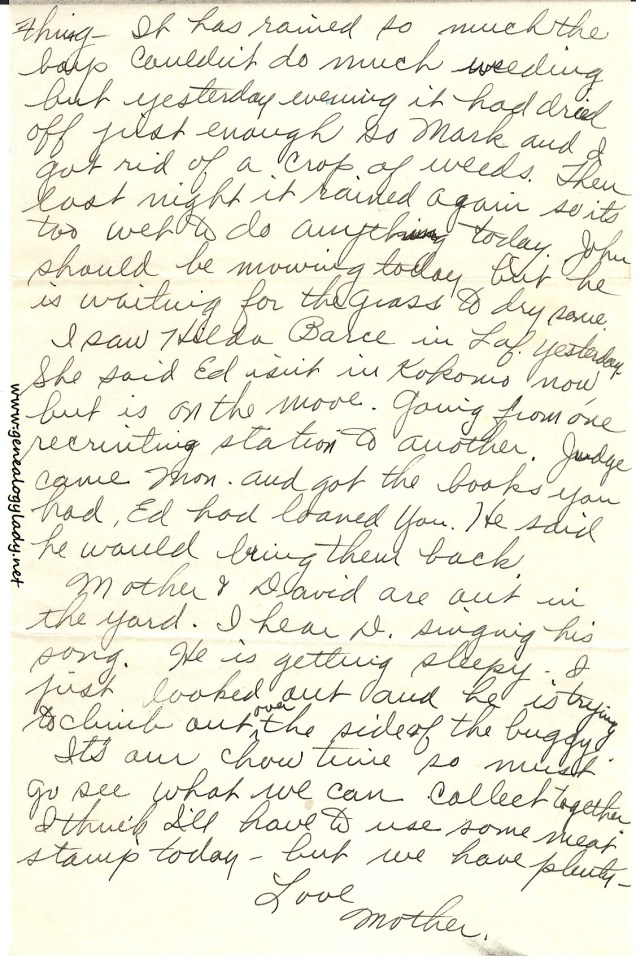 thing - It has rained so much the
boys couldn't do much weeding
but yesterday evening it had dried
off just enough so Mark and I
got rid of a crop of weeds. Then
last night it rained again so its
too wet to do anything today. John
should be mowing today but he
is waiting for the grass to dry some.
I saw Hilda Barce in Laf. yesterday.
She said Ed isn't in Kokomo now,
but is on the move. Going from one
recruiting station to another. Judge
came Mon. and got the books you
had, Ed had loaned you. He said
he would bring them back
Mother & David are out in
the yard. I hear D. singing his
song. He is getting sleepy - I
just looked out and he is trying
to climb out over the side of the buggy.
It's our chow time so must
go see what we can collect together
I think I'll have to use some meat
stamps today - but we have plenty -
Love
Mother.
www.genealogylady.net